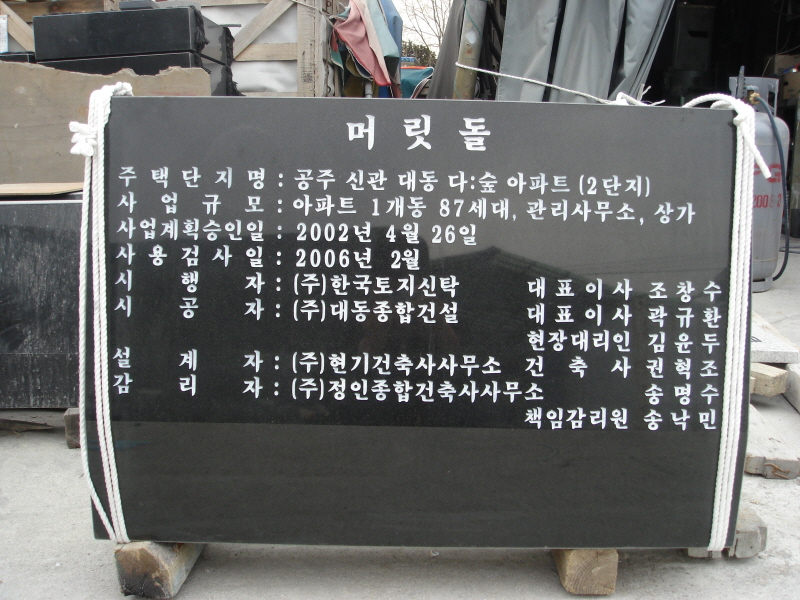 머릿돌
주택단지명 : 공주 신관 대동 다:숲 아파트 (2단지)
사업규모 : 아파트 1개동 87세대, 관리사무소, 상가
사업계획승인일 : 2002년 4월 26일
사용검사일 : 2006년 2월
시행자 : (주)한국토지신탁 대표이사 조창수
시공자 : (주)대동종합건설 대표이사 곽규환
현장대리인 김윤두
설계자 : (주)현기건축사사무소 건축사 권혁조
감리자 : (주)정인종합건축사사무소 송명수
책임감리원 송낙민